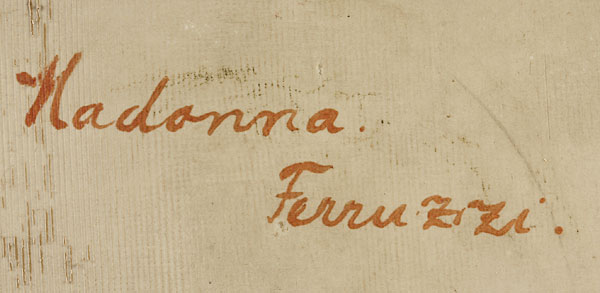 Madonna.
Ferruzzi.